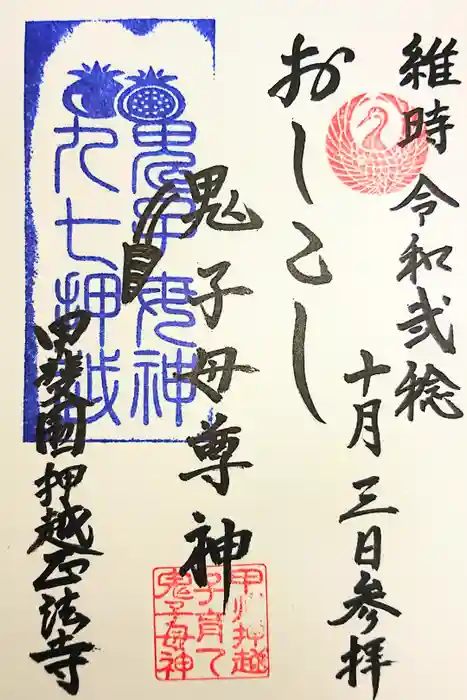 維時令和弐稔
十月三日参拝
おしこし
鬼子母尊神
甲斐國押越正法寺
鬼子母神
九七押越
甲州押越
子育て
鬼子母神